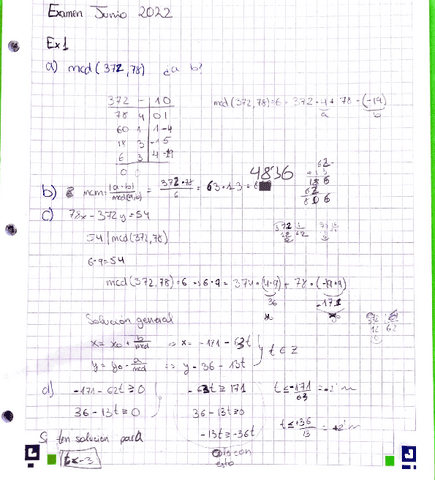 Examen Junio 2022
Ex1
a) mcd(372,78) ¿a b?
372 - 1 0
78 4 0 1
60 1 1 -4
18 3 -1 5
6 3 4 -19
0
mcd(372,78)=6 = 372·4 + 78·(-19)
a b
b) mcm = |a·b| / mcd(a,b) = 372·78 / 6 = 63·13 = 4836
62
186
62
806
c) 78x - 372y = 54
54 | mcd(372,78)
6·9=54
mcd(372,78)=6 → 6·9 = 374·(4·9) + 78·(-19·9)
36 -171
Solución general
x = x0 + b/mcd ⇒ x = -171 - 63t
y = y0 - a/mcd ⇒ y = 36 - 13t
t ∈ Z
d) -171 - 62t ≥ 0
36 - 13t ≥ 0
-63t ≥ 171
36 - 13t ≥ 0
-13t ≥ -36t
t ≤ -171/63 = -2'
t ≤ -36/13 = -2'
Si tien solución para
t ≤ -3